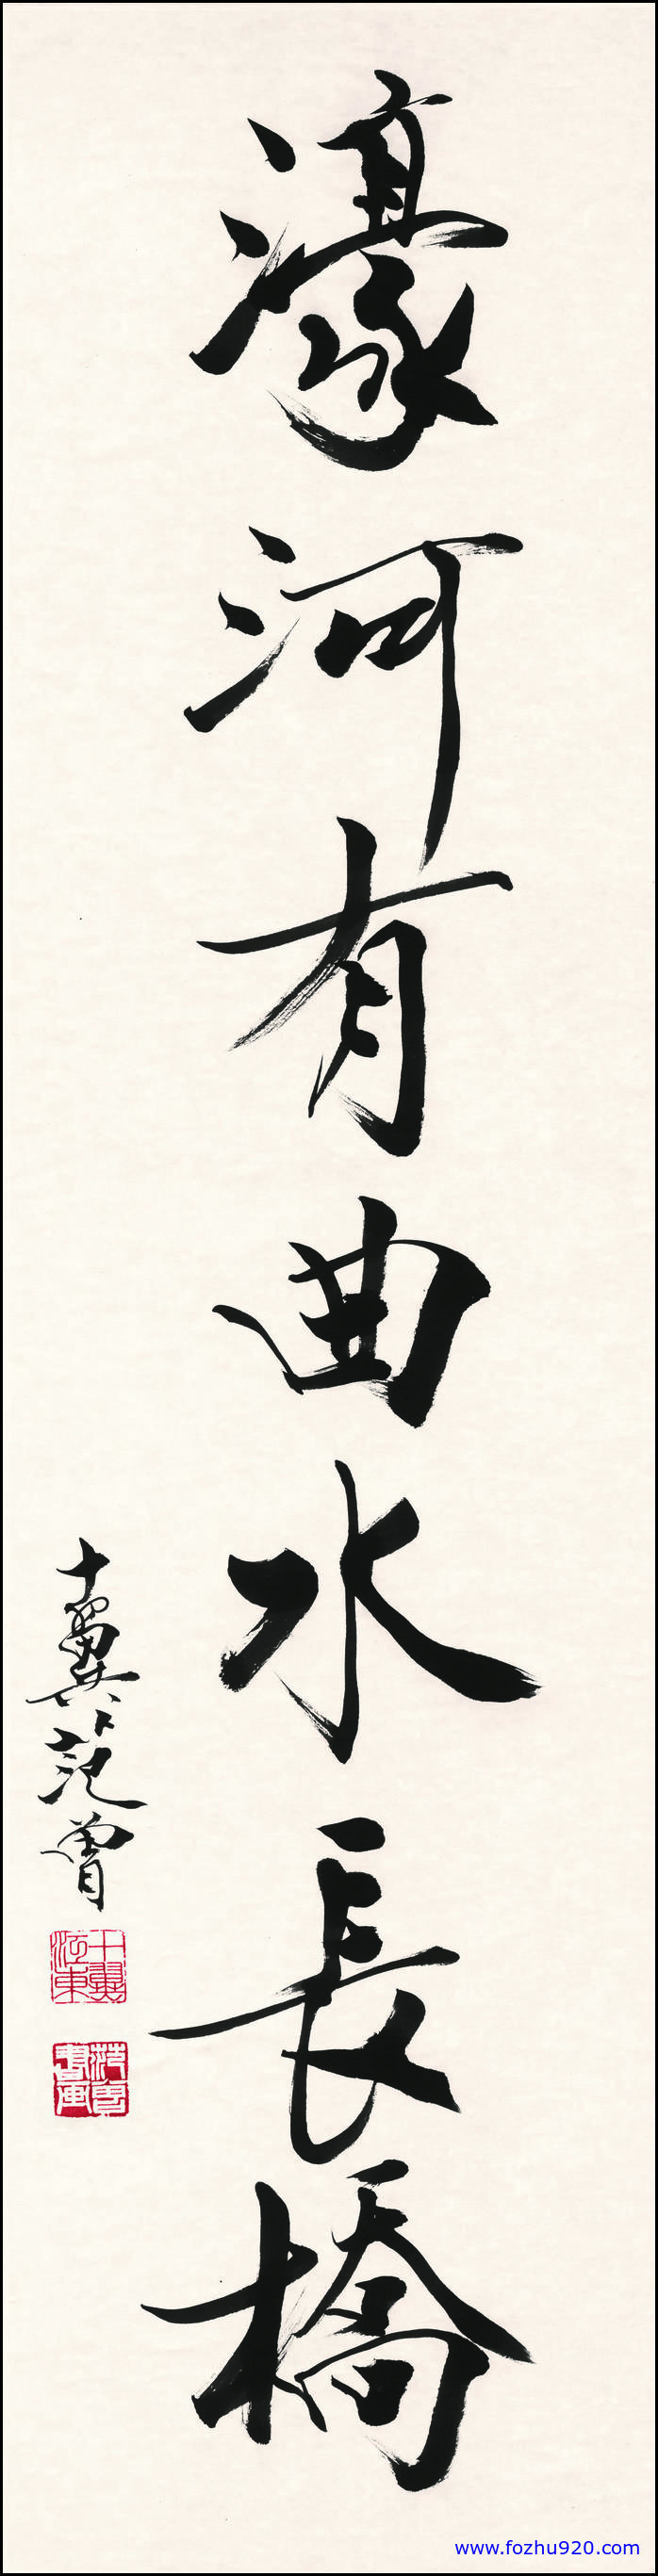 濠河有曲水長橋
十翼范曾
十翼江東
范曾書画
www.fozhu920.com